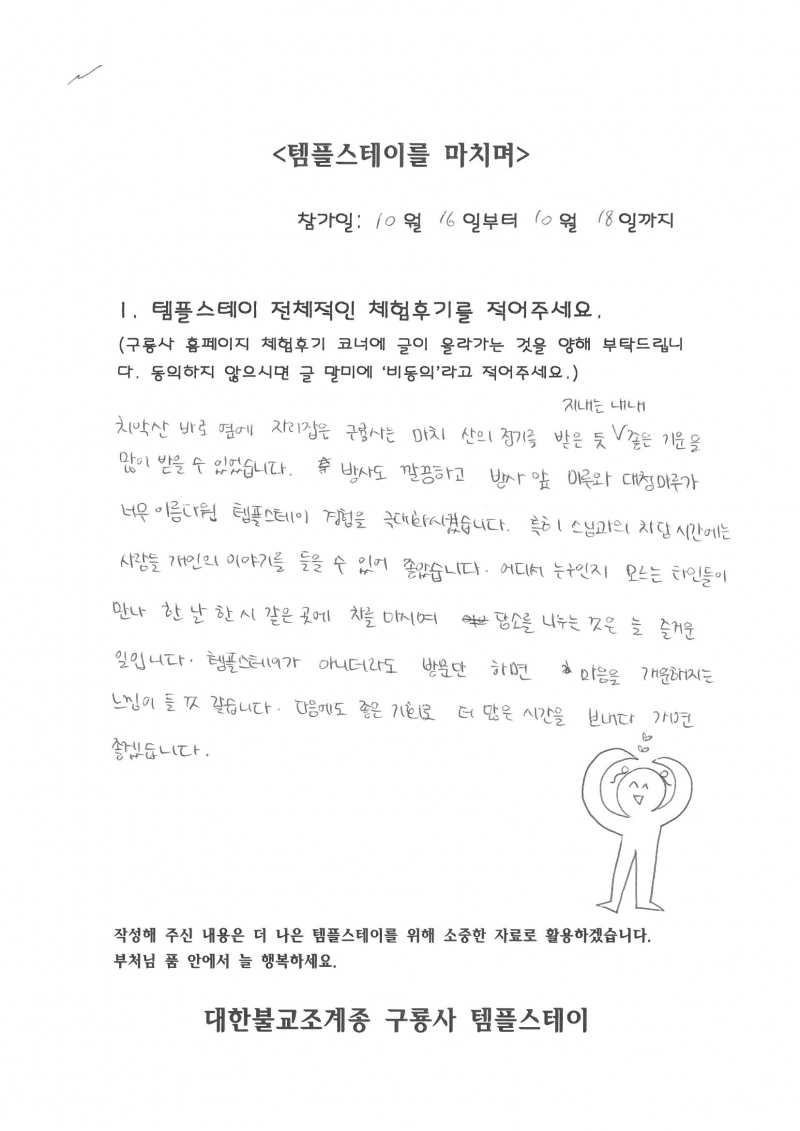 <템플스테이를 마치며>
참가일: 10월 16일부터 10월 18일까지
1. 템플스테이 전체적인 체험후기를 적어주세요.
(구룡사 홈페이지 체험후기 코너에 글이 올라가는 것을 양해 부탁드립니
다. 동의하지 않으시면 글 말미에 '비동의'라고 적어주세요.)
지내는 내내
치악산 바로 옆에 자리잡은 구룡사는 마치 산의 정기를 받은 듯 V 좋은 기운을
많이 받을 수 있었습니다. 방사도 깔끔하고 방사 앞 마루와 대청마루가
너무 아름다워 템플스테이 경험을 극대화시켰습니다. 특히 스님과의 차담 시간에는
사람들 개인의 이야기를 들을 수 있어 좋았습니다. 어디서 누구인지 모르는 타인들이
만나 한 날 한 시 같은 곳에 차를 마시며 담소를 나누는 것은 늘 즐거운
일입니다. 템플스테이가 아니더라도 방문만 하면 마음을 개운해지는
느낌이 들 것 같습니다. 다음에도 좋은 기회로 더 많은 시간을 보내다 가면
좋겠습니다.
작성해 주신 내용은 더 나은 템플스테이를 위해 소중한 자료로 활용하겠습니다.
부처님 품 안에서 늘 행복하세요.
대한불교조계종 구룡사 템플스테이